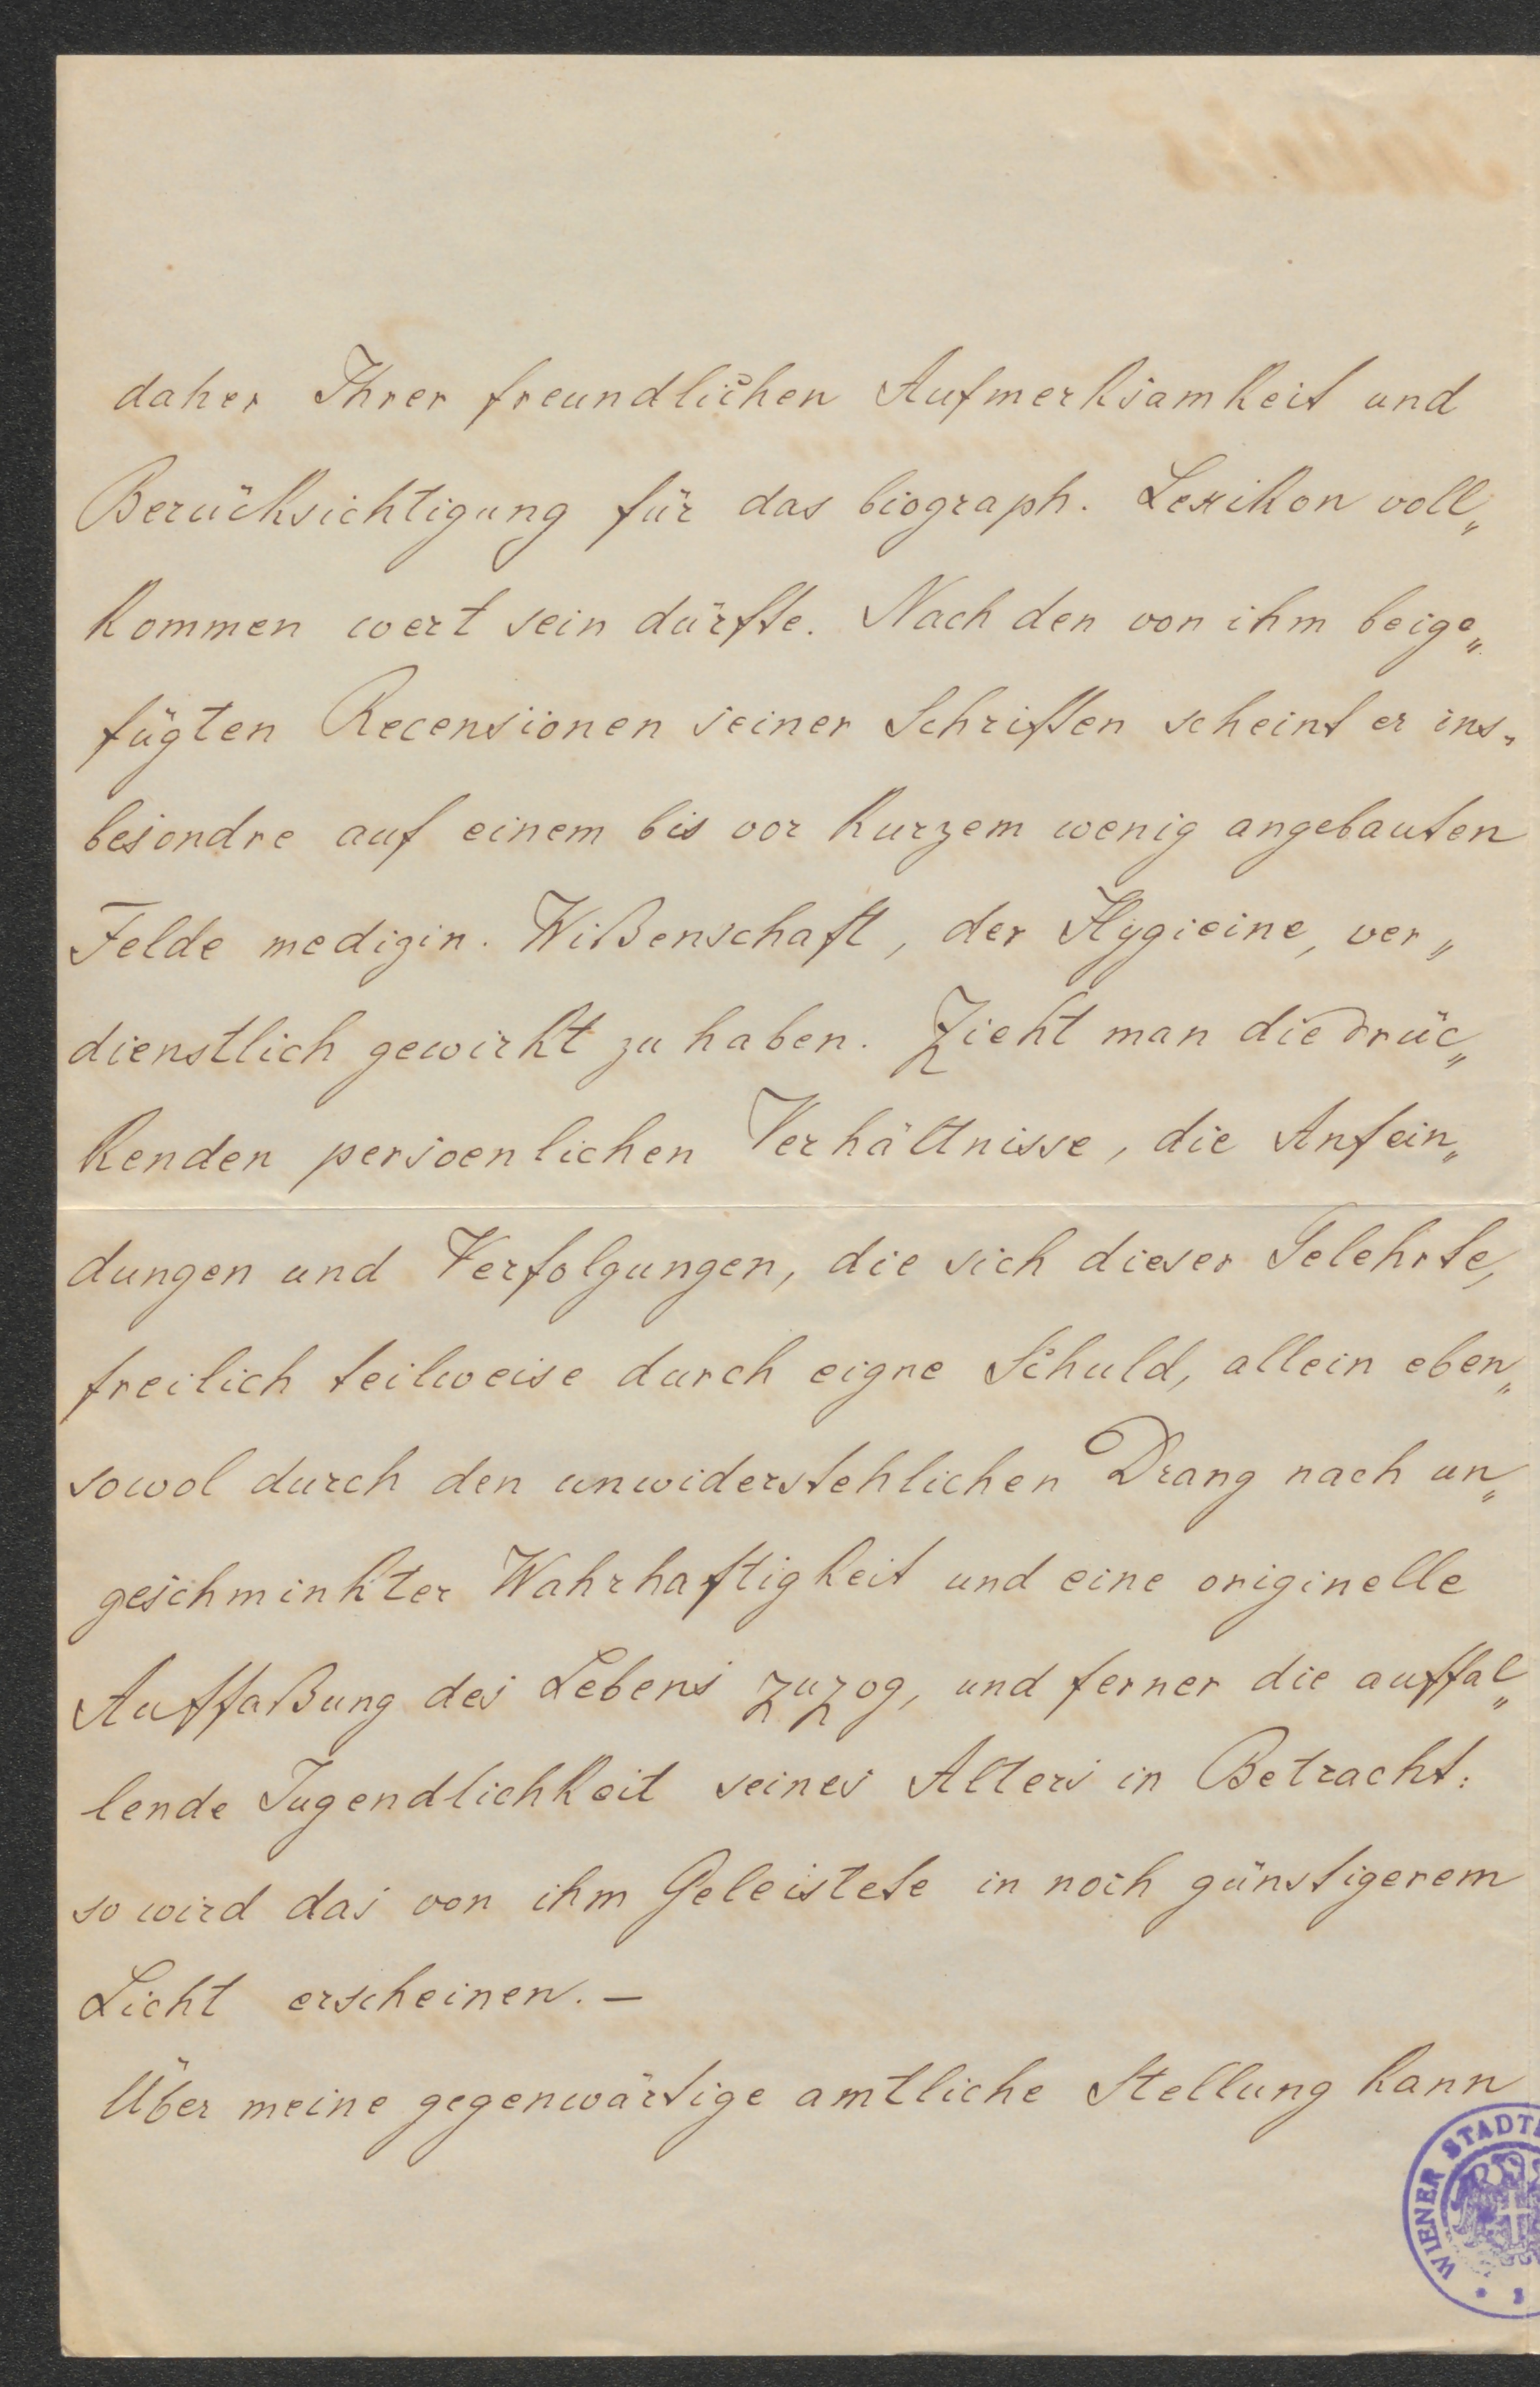 daher Ihrer freundlichen Aufmerksamkeit und
Berücksichtigung für das biograph. Lexikon voll„
kommen wert sein dürfte. Nach den von ihm beige„
fügten Recensionen seiner Schriften scheint er ins„
besondre auf einem bis vor kurzem wenig angebauten
Felde medizin. Wißenschaft, der Hygieine, ver„
dienstlich gewirkt zu haben. Zieht man die drüc„
kenden persoenlichen Verhältnisse, die Anfein„
dungen und Verfolgungen, die sich dieser Gelehrte,
freilich teilweise durch eigne Schuld, allein eben„
sowol durch den unwiderstehlichen Drang nach un„
geschminkter Wahrhaftigkeit und eine originelle
Auffaßung des Lebens zuzog, und ferner die auffal„
lende Jugendlichkeit seines Alters in Betracht:
so wird das von ihm Geleistete in noch günstigerem
Licht erscheinen. —
Über meine gegenwärtige amtliche Stellung kann
WIENER STADT